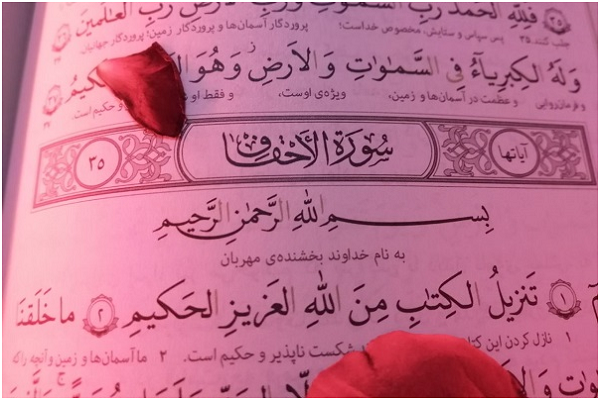 فَلِلّٰهِ الحَمدُ رَبِّ السَّمٰوٰتِ وَرَبِّ الأَرضِ رَبِّ العٰلَمينَ
جلب کنند. ۳۵ پس سپاس و ستایش، مخصوص خداست؛ پروردگار آسمان‌ها و پروردگار زمین؛ پروردگار جهانیان.
وَلَهُ الكِبرِياءُ فِي السَّمٰوٰتِ وَالأَرضِ وَهُوَ
و فرمان‌روایی و عظمت در آسمان‌ها و زمین، ویژه‌ی اوست، و فقط او و حکیم است.
آیاتها سورة الأحقاف ۳۵
بِسمِ اللهِ الرَّحمٰنِ الرَّحيمِ
به نام خداوند بخشنده‌ی مهربان
۱ تَنزيلُ الكِتٰبِ مِنَ اللهِ العَزيزِ الحَكيمِ ۲ ما خَلَقنَا
۱ نازل کردن این شکست ناپذیر و حکیم است. ۲ ما آسمان‌ها و زمین و آنچه را که